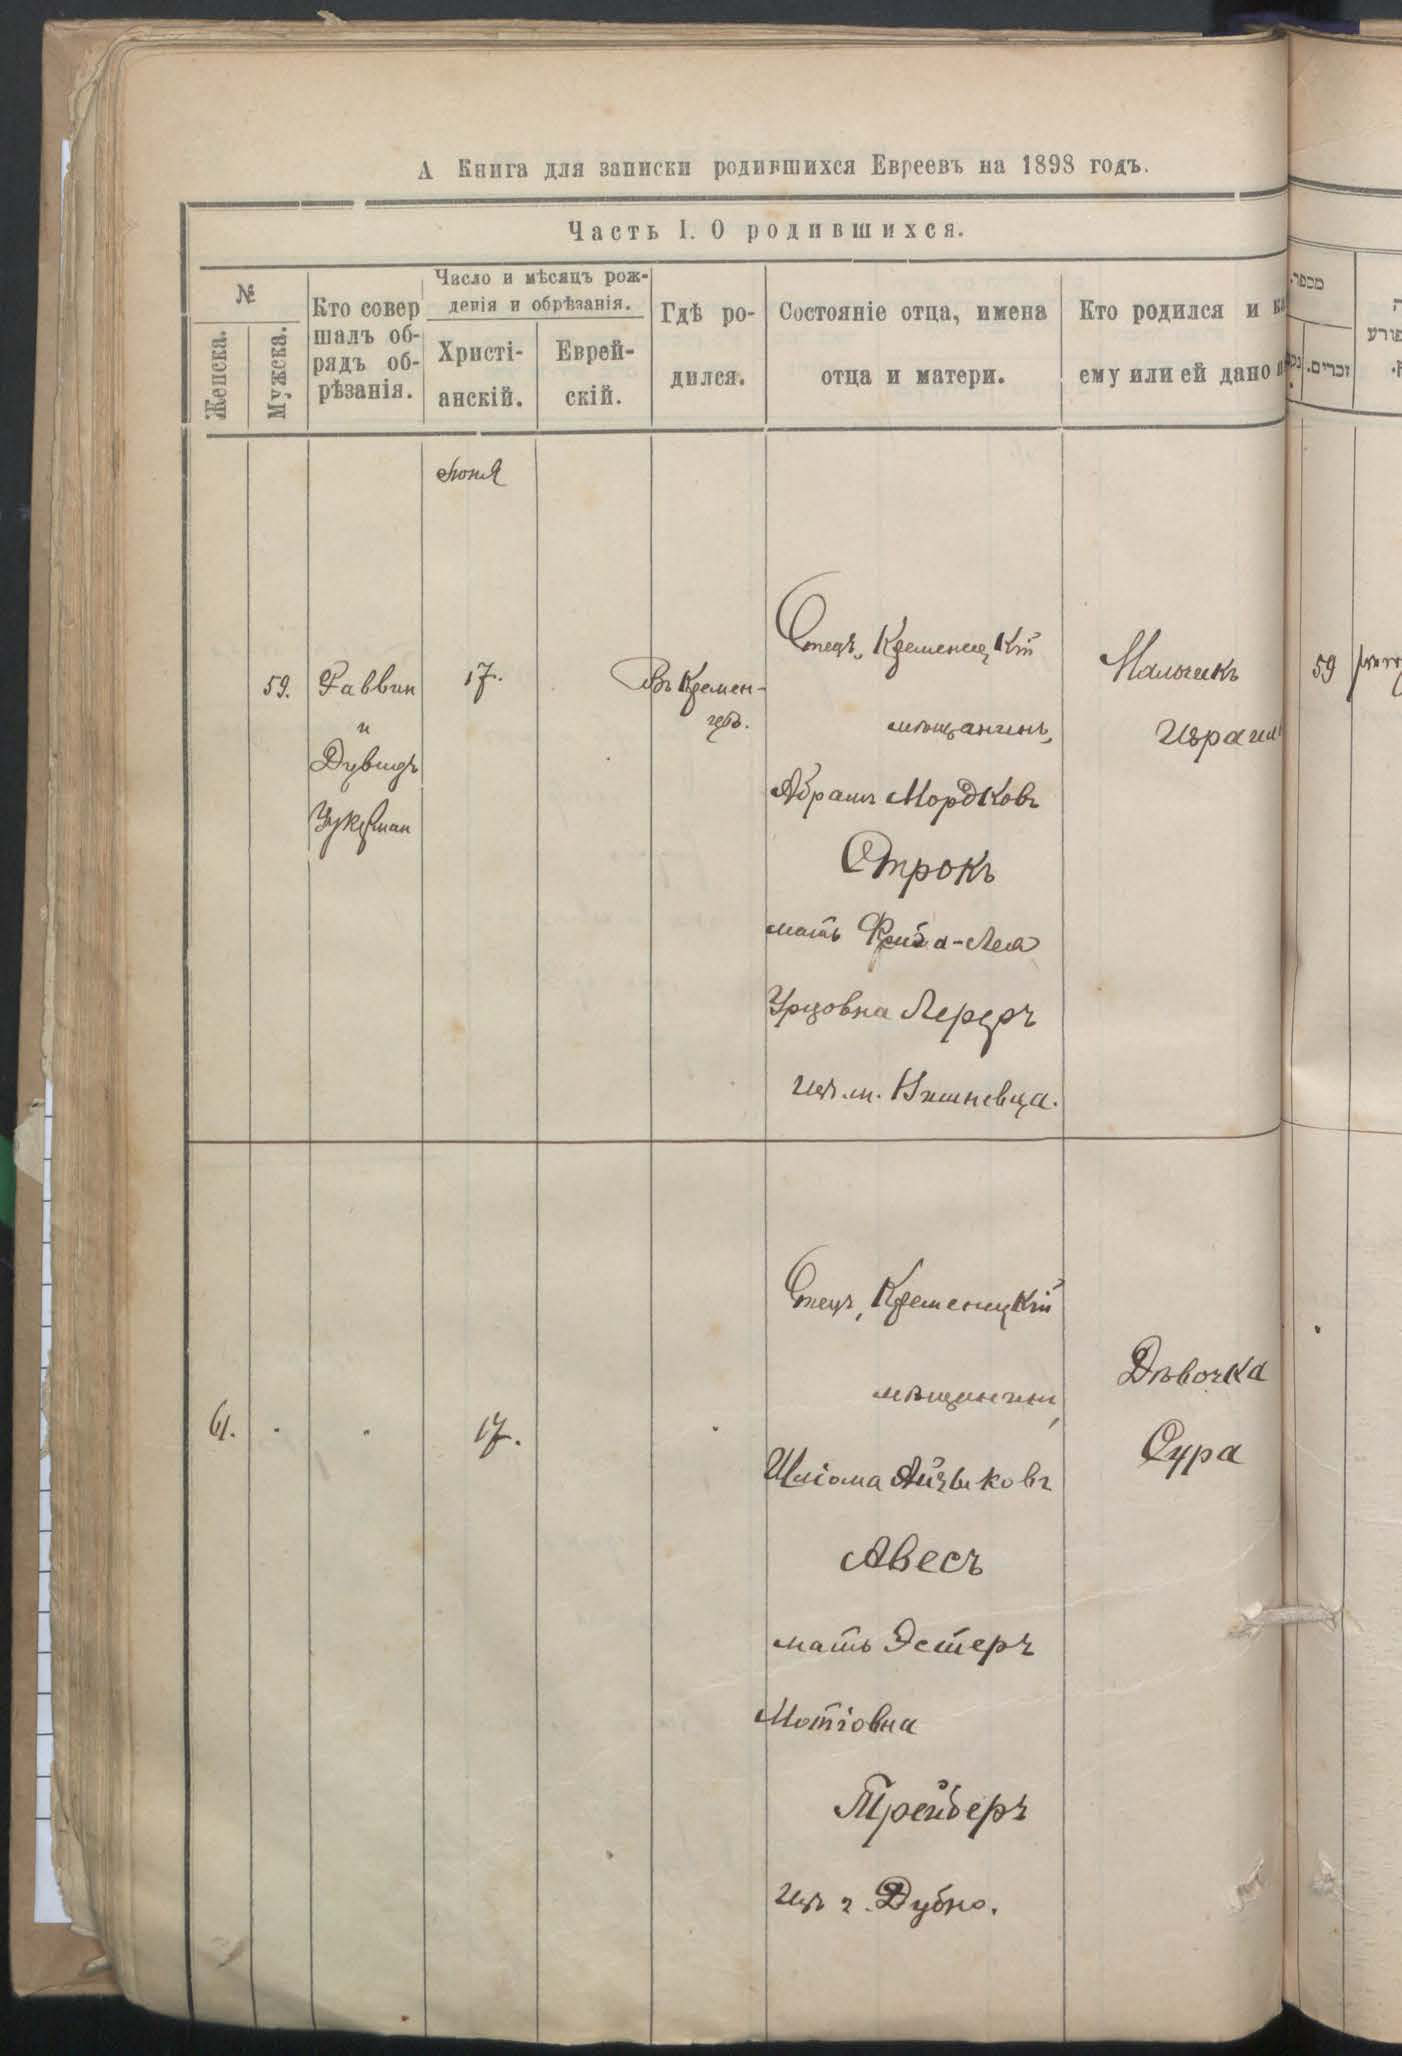 А Книга для записки родившихся Евреевъ на 1898 годъ.
Часть I. О родившихся.
№
Женска.
Мужска.
Кто совер
шалъ об-
рядъ об-
рѣзанія.
Число и мѣсяцъ рож-
денія и обрѣзанія.
Христі-
анскій.
Еврей-
скій.
Гдѣ ро-
дился.
Состояніе отца, имена
отца и матери.
Кто родился и
ему или ей дано
מספר.
זכרים.
Іюня
59.
Раввин
и
Дувидъ
Цукерман
17.
Въ Кремен-
цѣ.
Отецъ, Кременецкій
мѣщанинъ,
Абрамъ Мордковъ
Строкъ
мать Фрейда-Лея
Лереръ
изъ м. Вишневца.
Мальчикъ
59
61.
17.
Отецъ, Кременецкій
мѣщанинъ,
Шліома Айзыковъ
Авесъ
мать Эстеръ
Мотіовна
Трейберъ
изъ г. Дубно.
Дѣвочка
Сура